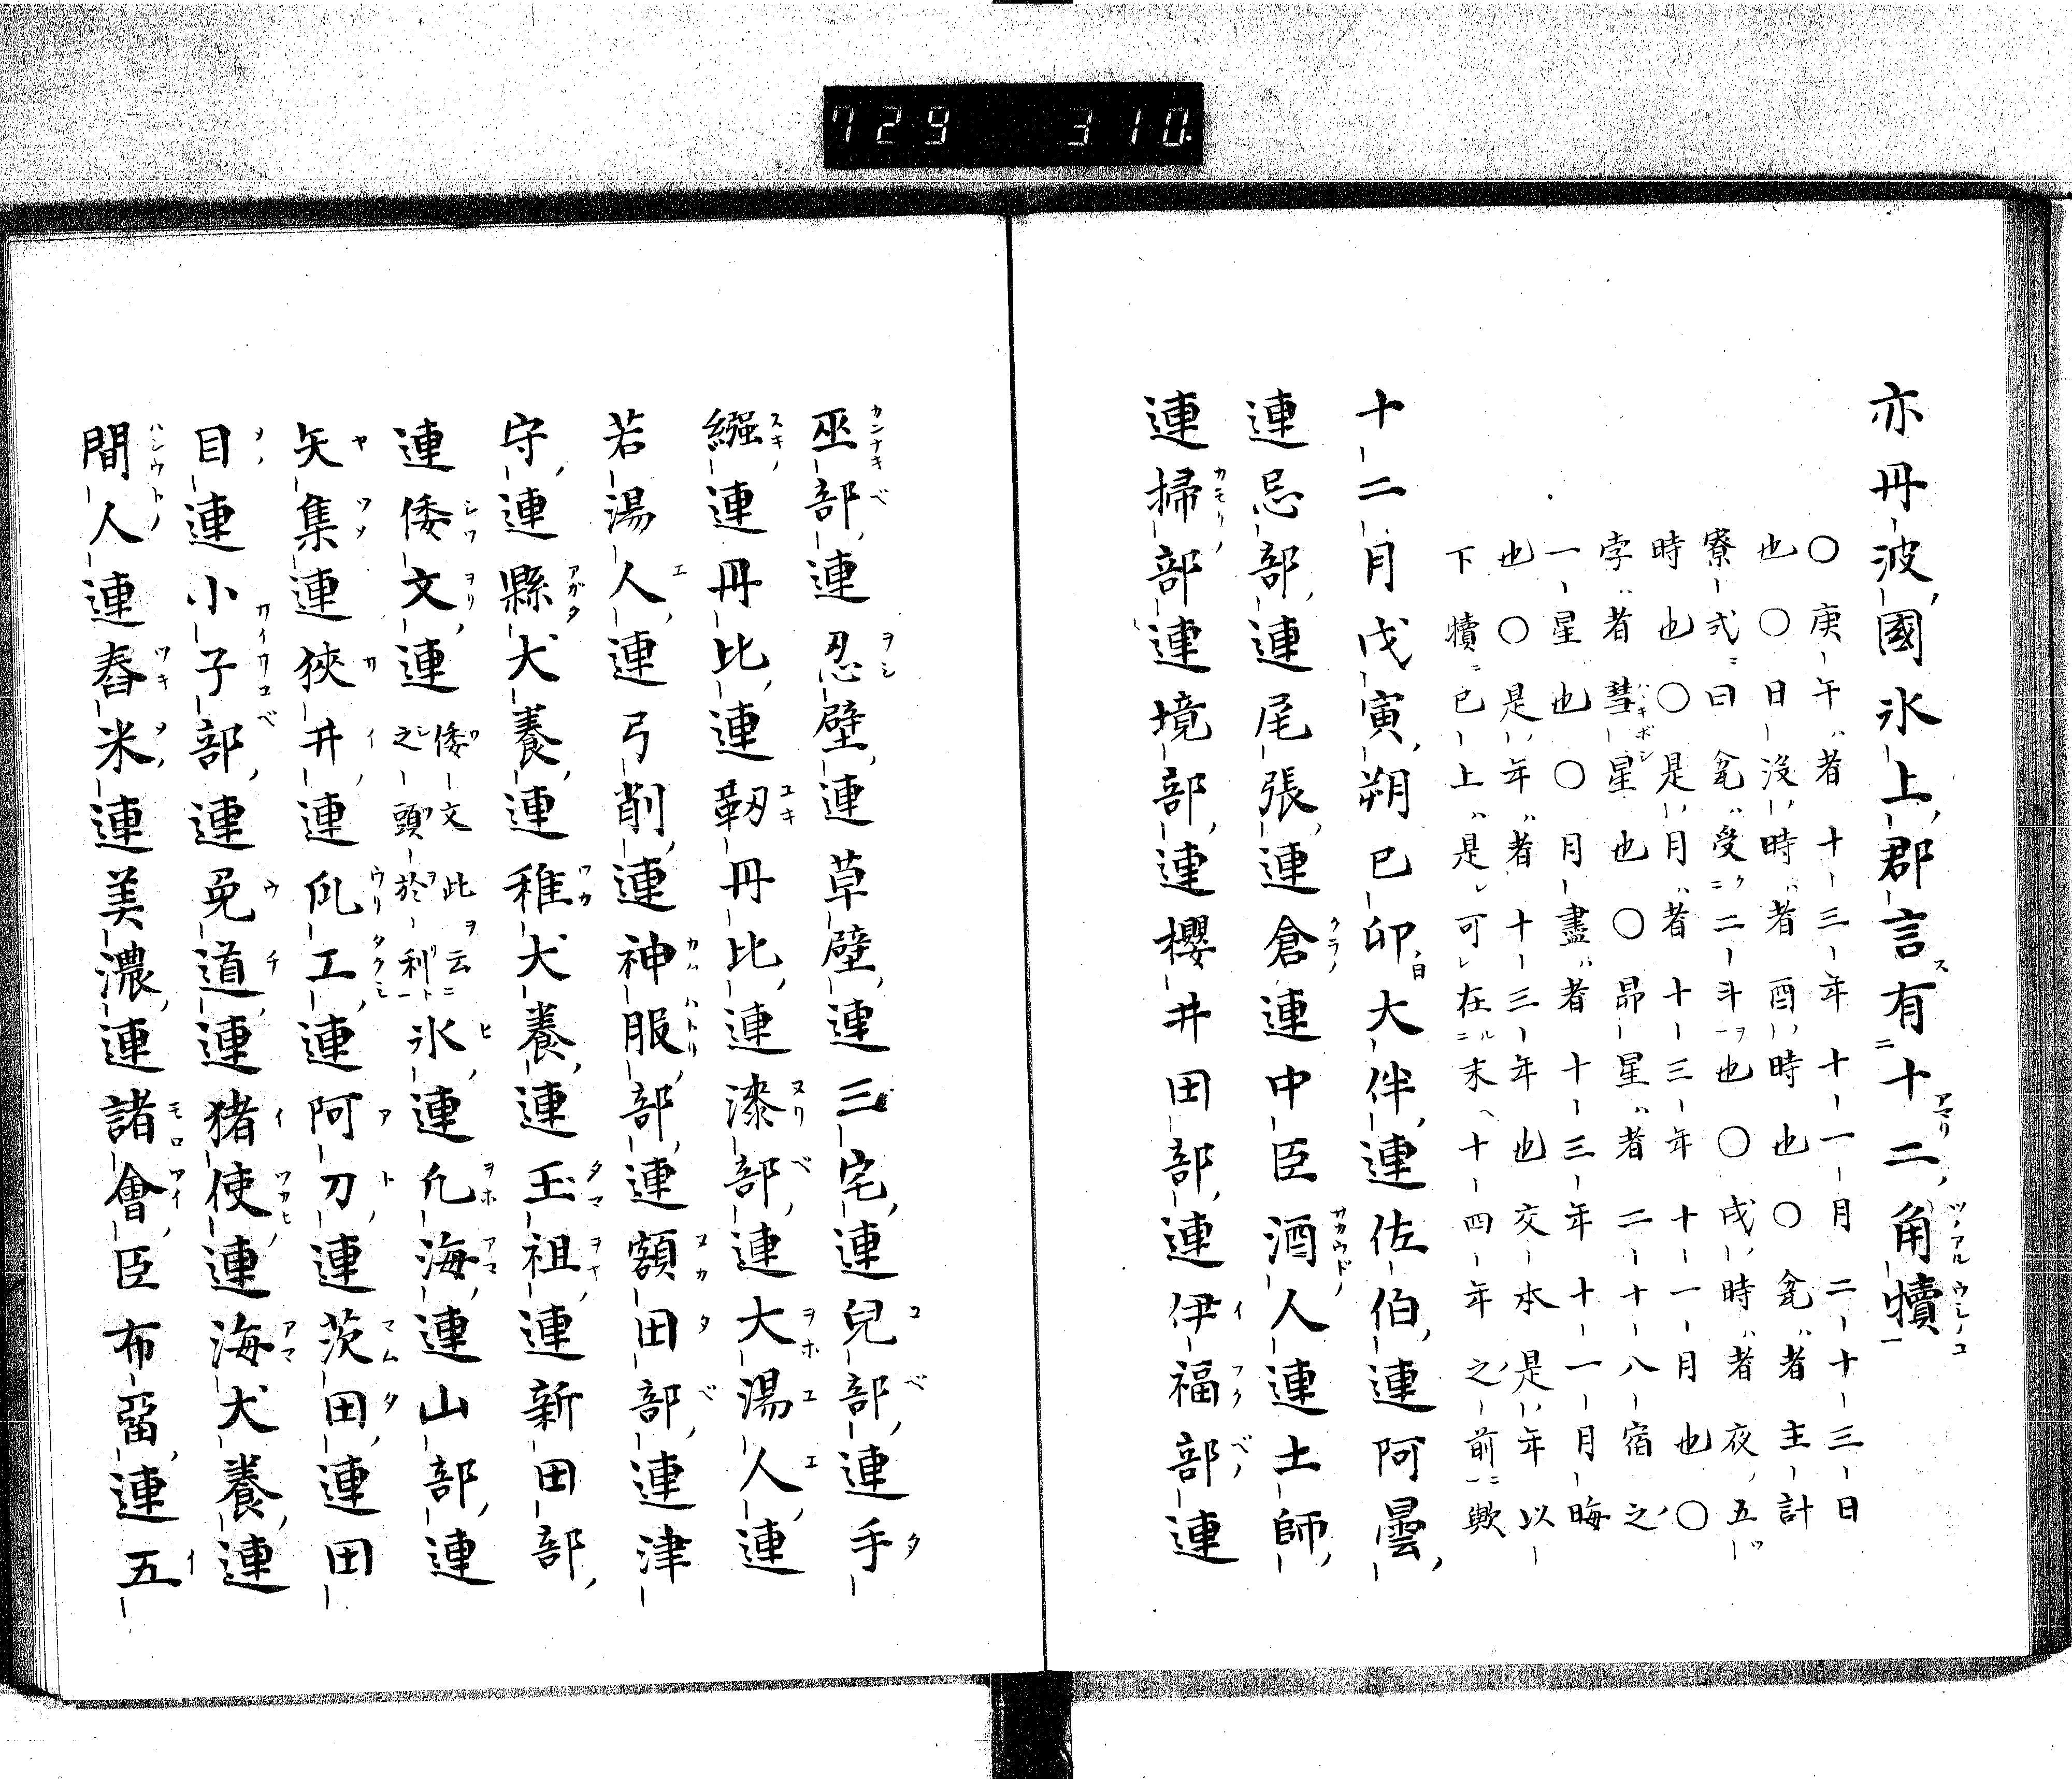 729 310
亦丹波國氷上郡言有十二角犢
〇庚午者十三年十一月二十三日
也〇日沒時者酉時也〇瓮者主計
寮式曰瓮受二斗也〇戌時者夜五
時也〇是月者十三年十一月也〇
孛者彗星也〇昴星者二十八宿之
一星也〇月盡者十三年十一月晦
也〇是年者十三年也交本是年以
下犢已上是可在末十四年之前歟
十二月戊寅朔巳卯日大伴連佐伯連阿曇
連忌部連尾張連倉連中臣酒人連土師
連掃部連境部連櫻井田部連伊福部連
巫部連忍壁連草壁連三宅連兒部連手
繦連丹比連靱丹比連漆部連大湯人連
若湯人連弓削連神服部連額田部連津
守連縣犬養連稚犬養連玉祖連新田部
連倭文連倭文此云之頭於利氷連凡海連山部連
矢集連狹井連瓜工連阿刀連茨田連田
目連小子部連菟道連猪使連海犬養連
間人連舂米連美濃連諸會臣布留連五